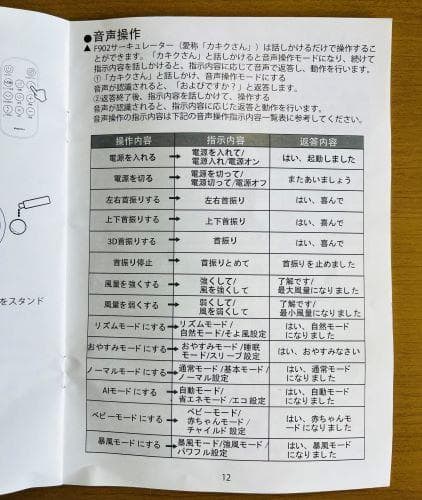 ●音声操作
▲ F902サーキュレーター（愛称「カキクさん」）は話しかけるだけで操作するこ
とができます。「カキクさん」と話しかけると音声操作モードになり、続けて
指示内容を話しかけると、指示内容に応じて音声で返答し、動作を行います。
①「カキクさん」と話しかけ、音声操作モードにする
音声が認識されると、「およびですか？」と返答します。
②返答終了後、指示内容を話しかけて、操作する
音声が認識されると、指示内容に応じた返答と動作を行います。
音声操作の指示内容は下記の音声操作指示内容一覧表に参考してください。
操作内容 指示内容 返答内容
電源を入れる → 電源を入れて/
電源入れ/電源オン はい、起動しました
電源を切る → 電源を切って/
電源切って/電源オフ またあいましょう
左右首振りする → 左右首振り はい、喜んで
上下首振りする → 上下首振り はい、喜んで
3D首振りする → 首振り はい、喜んで
首振り停止 → 首振りとめて 首振りを止めました
風量を強くする → 強くして/
風を強くして 了解です/
最大風量になりました
風量を弱くする → 弱くして/
風を弱くして 了解です/
最小風量になりました
リズムモードにする → リズムモード/
自然モード/そよ風設定 はい、自然モード
になりました
おやすみモードにする → おやすみモード/睡眠
モード/スリープ設定 はい、おやすみなさい
ノーマルモードにする → 通常モード/基本モード/
ノーマル設定 はい、通常モード
になりました
AIモードにする → 自動モード/
省エネモード/エコ設定 はい、自動モード
になりました
ベビーモードにする → ベビーモード/
赤ちゃんモード/
チャイルド設定 はい、赤ちゃんモ
ードになりました
暴風モードにする → 暴風モード/強風モード/
パワフル設定 はい、暴風モード
になりました
12
をスタンド